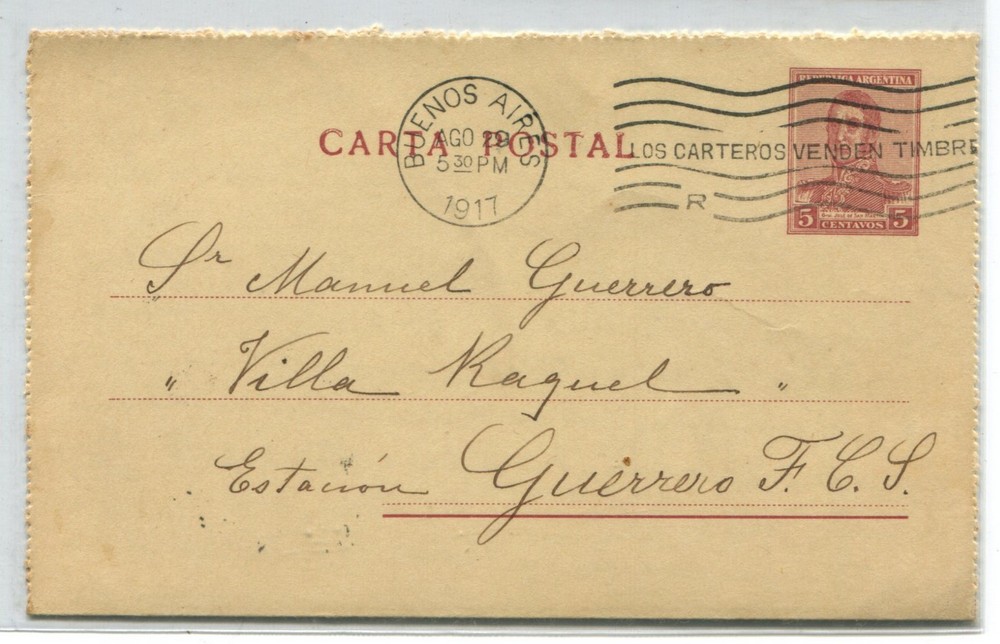 REPUBLICA ARGENTINA
BUENOS AIRES
AGO 29
5 30 PM
1917
CARTA POSTAL
LOS CARTEROS VENDEN TIMBRE
R
5 CENTAVOS 5
Sr Manuel Guerrero
" Villa Raquel "
Estación Guerrero F. C. S.